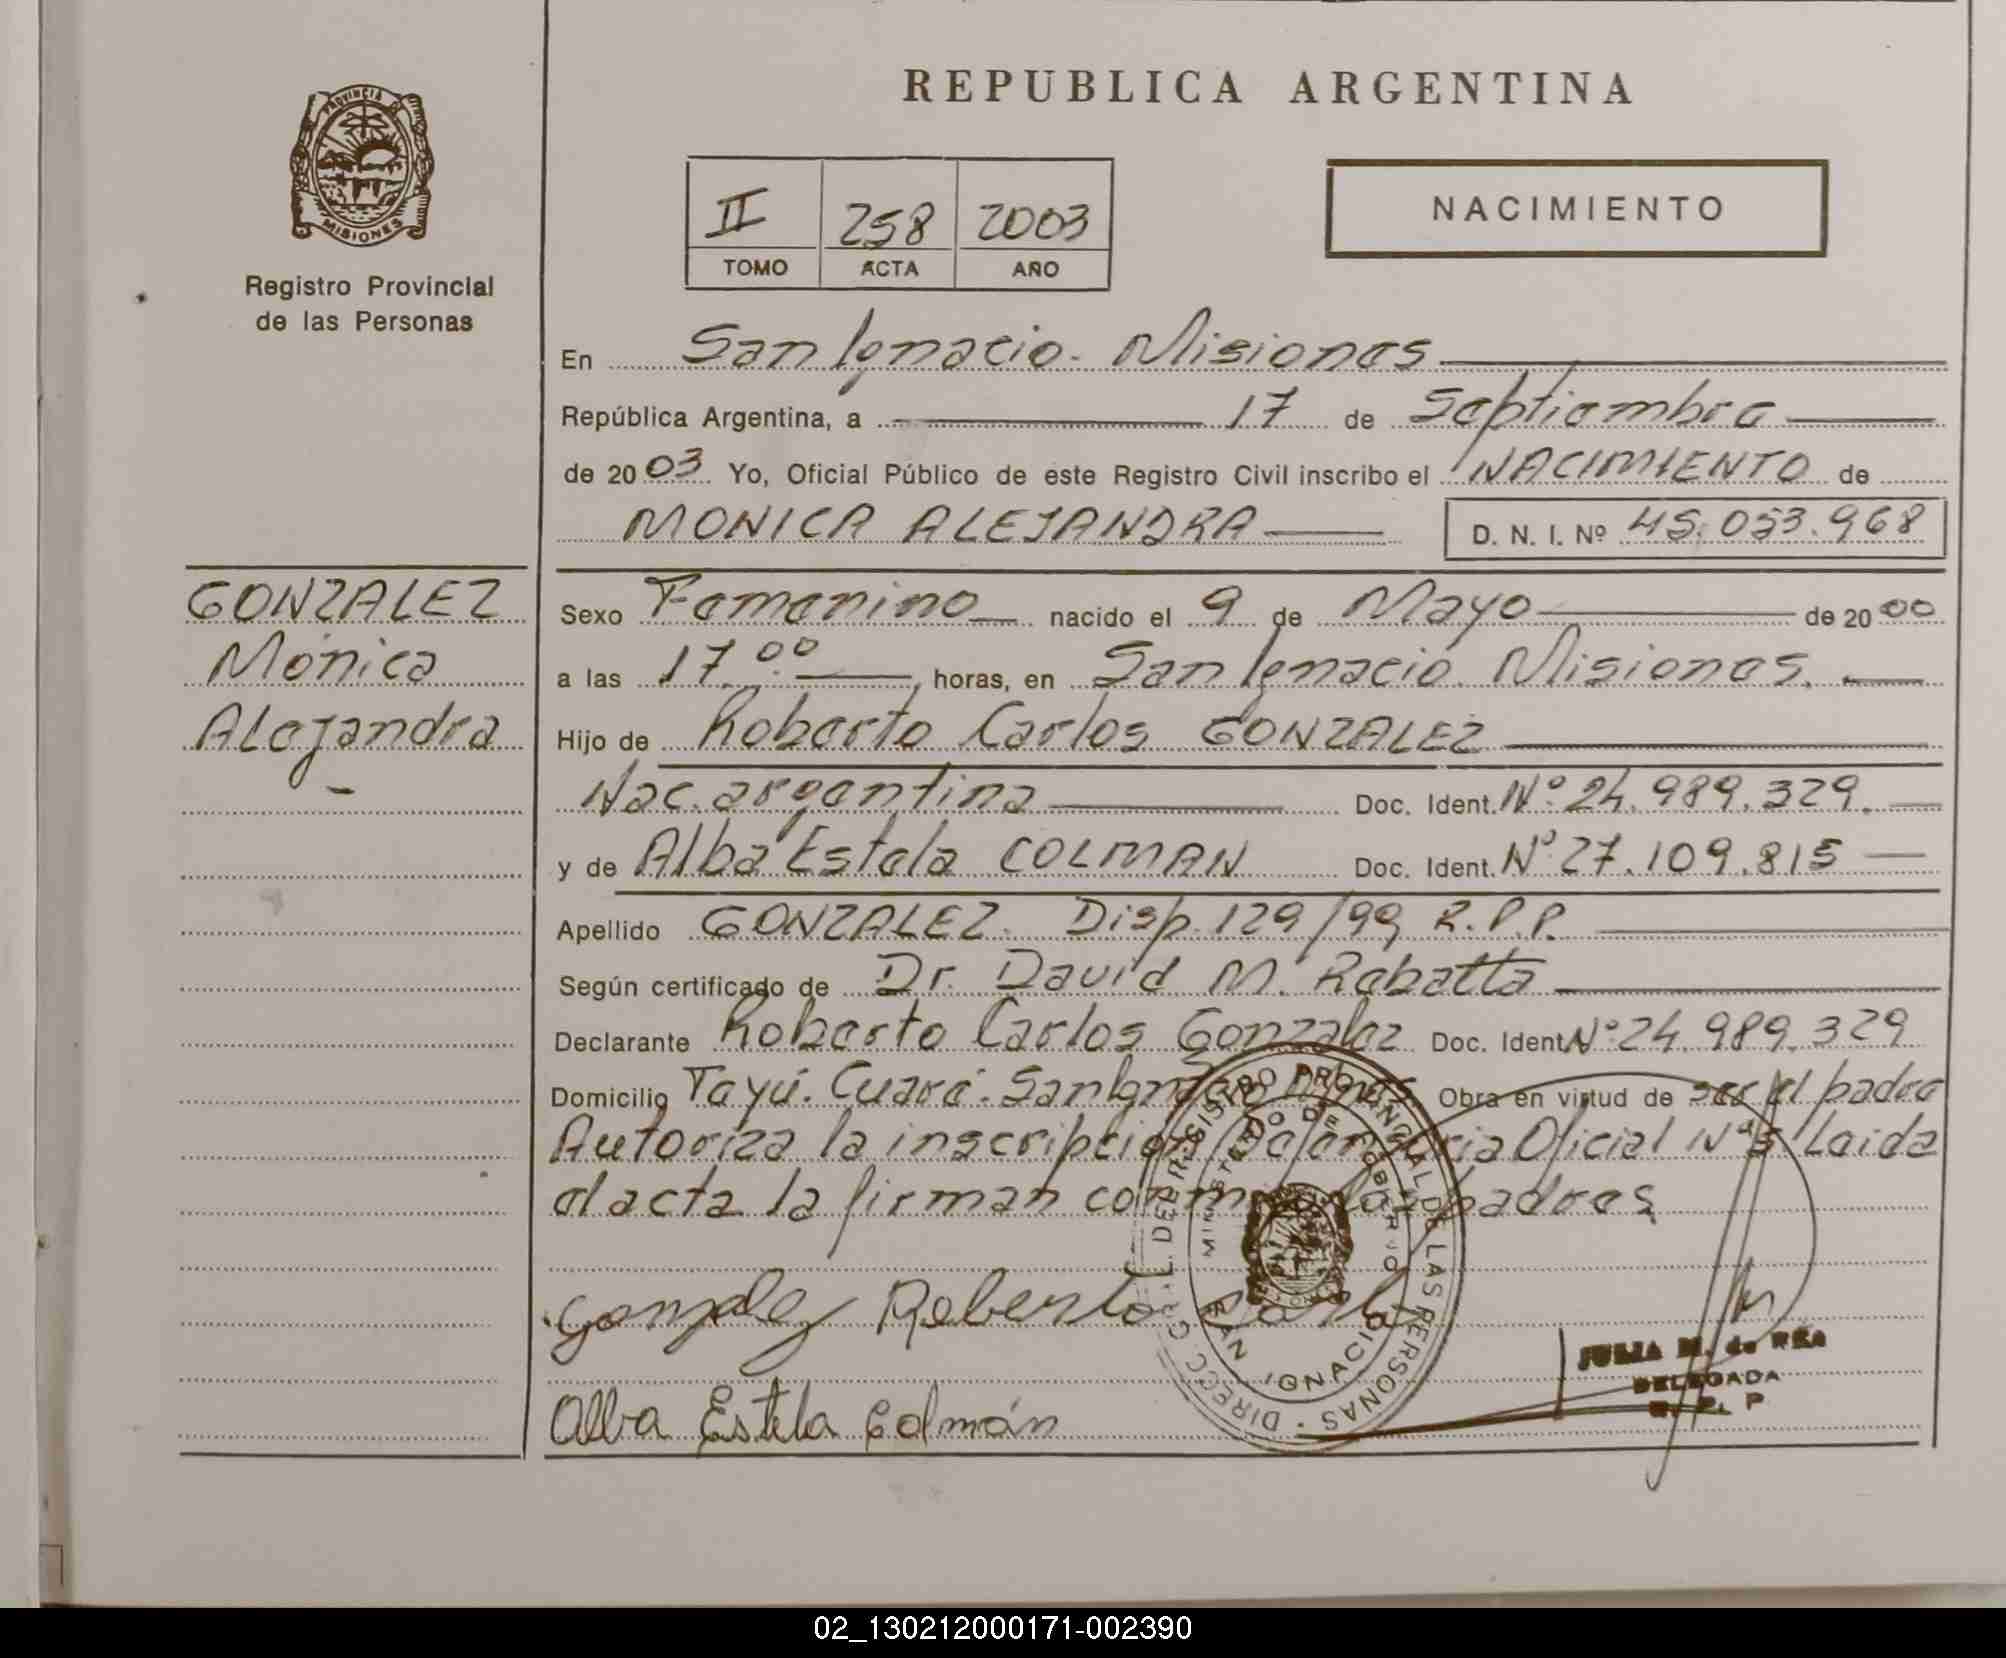 REPUBLICA ARGENTINA
PROVINCIA DE
MISIONES
Registro Provincial
de las Personas
II 258 2003
TOMO ACTA AÑO
NACIMIENTO
En San Ignacio. Misiones
República Argentina, a 17 de Septiembre
de 2003 Yo, Oficial Público de este Registro Civil inscribo el NACIMIENTO de
MONICA ALEJANDRA D. N. I. Nº 45.053.968
GONZALEZ
Mónica
Alejandra
Sexo Femenino nacido el 9 de Mayo de 2000
a las 17.00 horas, en San Ignacio. Misiones.
Hijo de Roberto Carlos GONZALEZ
Nac. argentina Doc. Ident. Nº 24.989.329.
y de Alba Estela COLMAN Doc. Ident. Nº 27.109.815
Apellido GONZALEZ. Disp. 129/99 R.P.P.
Según certificado de Dr. David M. Rabatta
Declarante Roberto Carlos Gonzalez Doc. Ident Nº 24.989.329
Domicilio Tayú. Cuaré. San Ignacio Mnes. Obra en virtud de ser el padre
Autoriza la inscripción Defensoria Oficial Nº 5 Leida
el acta la firman conmigo los padres.
Gonzalez Roberto Carlos
Alba Estela Colmán
DIRECC. GRAL. DEL REGISTRO PROVINCIAL DE LAS PERSONAS
MINISTERIO DE GOBIERNO
SAN IGNACIO
JULIA M. de REA
DELEGADA
R. P. P
02_130212000171-002390